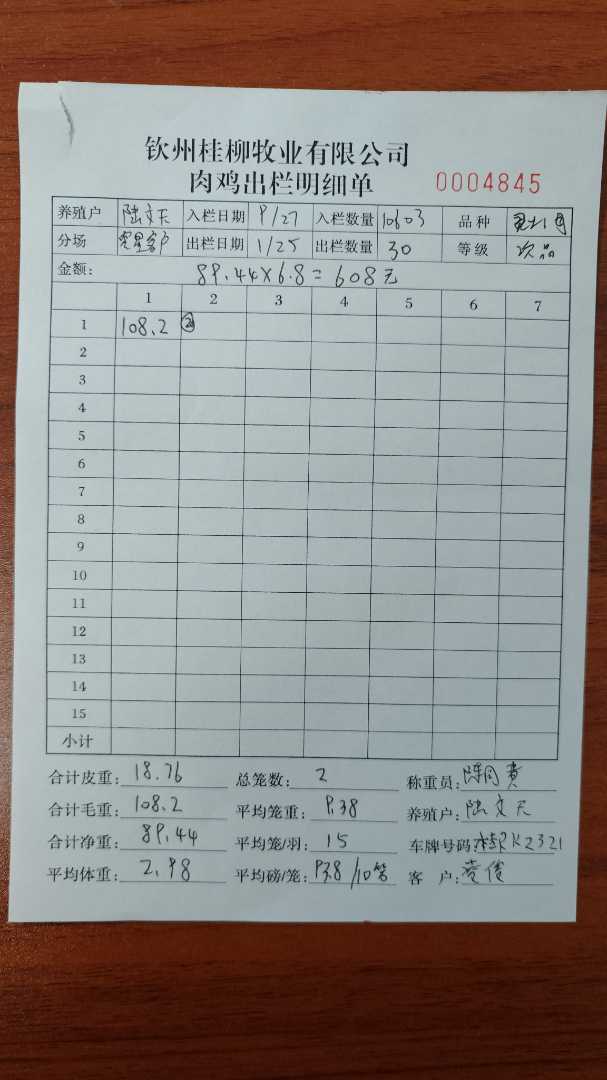 钦州桂柳牧业有限公司
肉鸡出栏明细单 0004845
养殖户 陆文天 入栏日期 9/27 入栏数量 10603 品种
分场 客户 出栏日期 1/25 出栏数量 30 等级 次品
金额: 89.44×6.8=608元
1 2 3 4 5 6 7
1 108.2 ②
2
3
4
5
6
7
8
9
10
11
12
13
14
15
小计
合计皮重: 18.76 总笼数: 2 称重员: 陈同贵
合计毛重: 108.2 平均笼重: 9.38 养殖户: 陆文天
合计净重: 89.44 平均笼/羽: 15 车牌号码: 桂RK2321
平均体重: 2.98 平均磅/笼: 938/10笼 客 户: